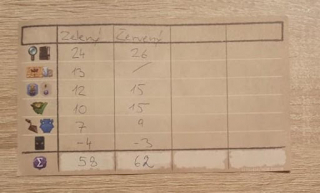 Zelený Červený
24 26
13 /
12 15
10 15
7 9
-4 -3
Σ 58 62